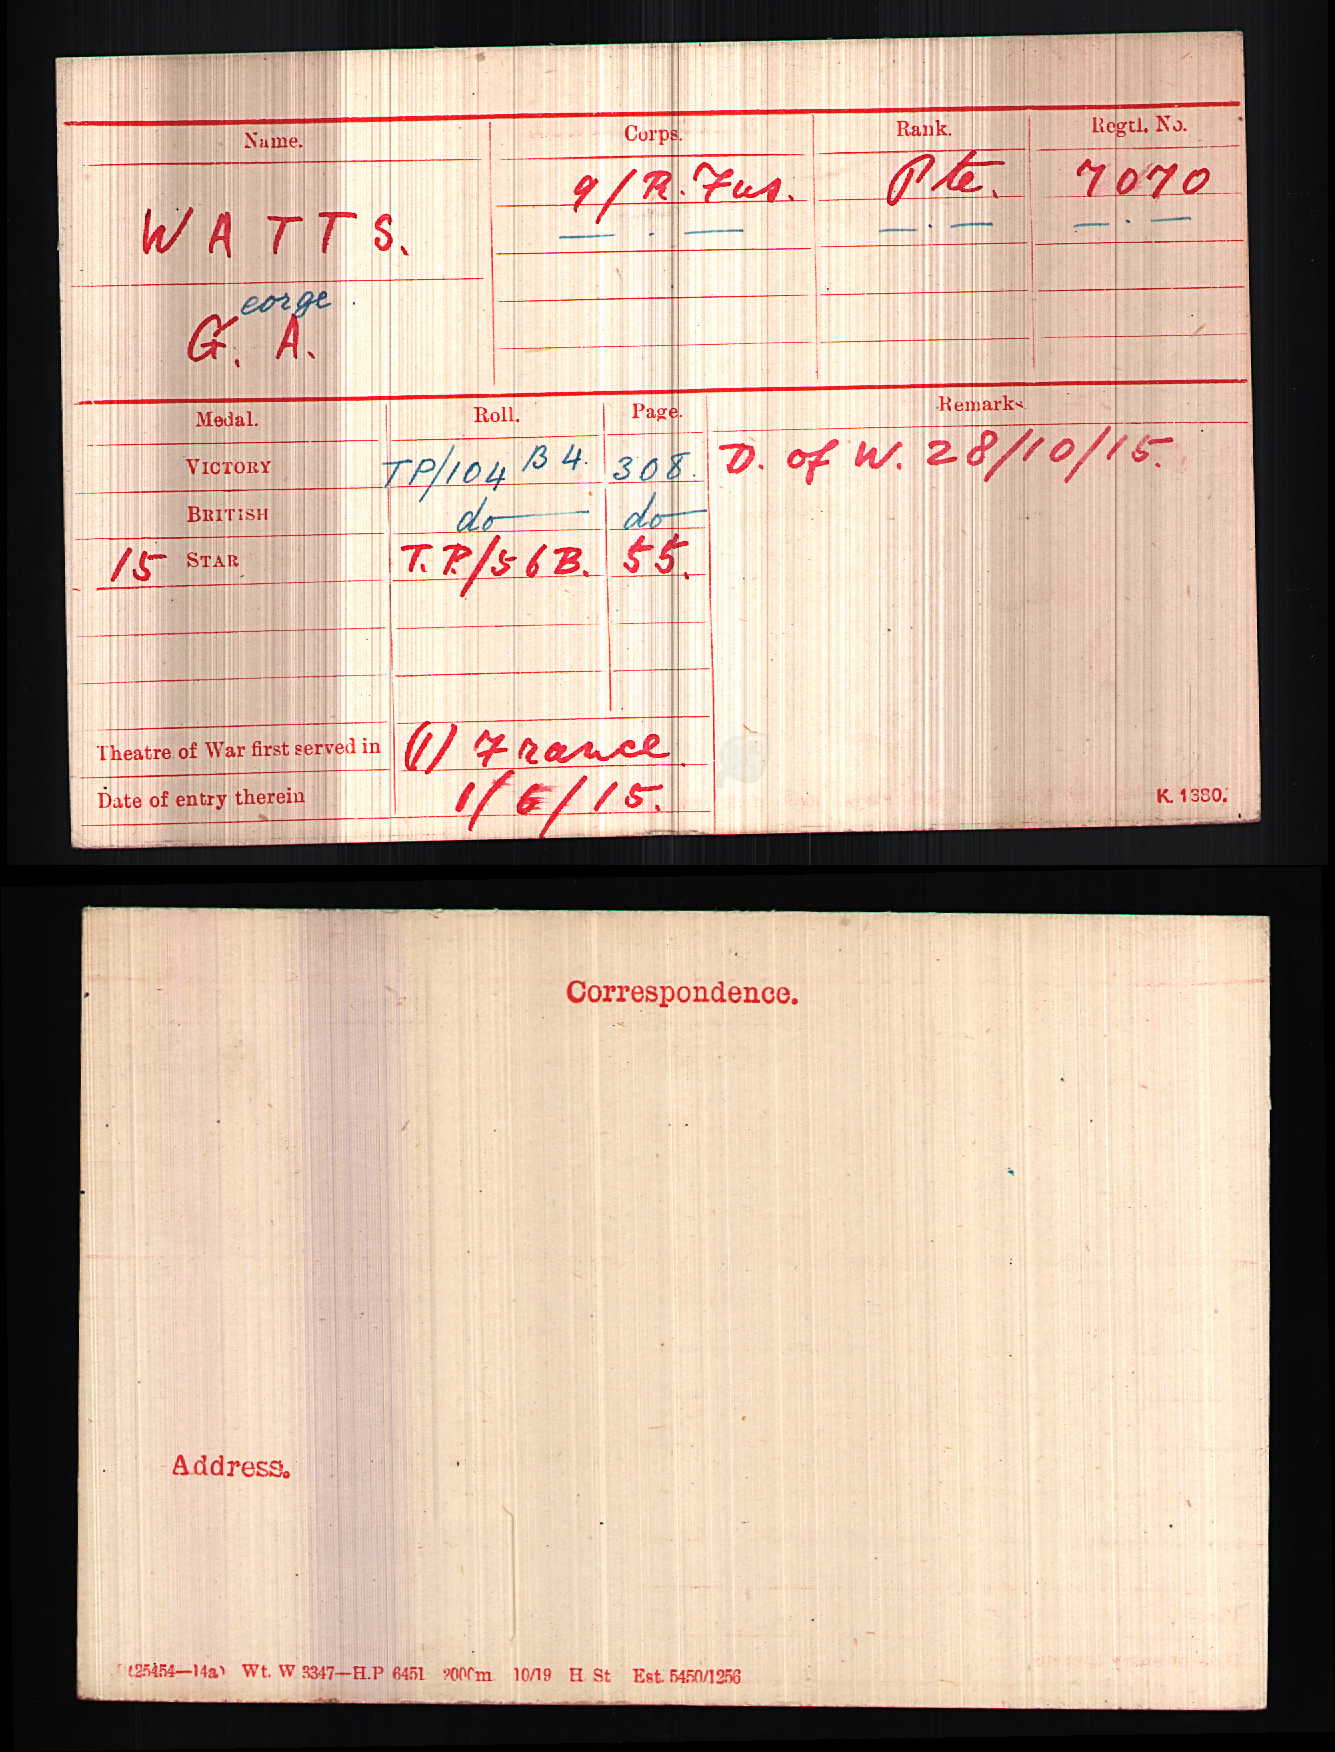 Name. Corps. Rank. Regtl. No.
9/R. Fus. Pte. 7070
WATTS. — . — — . — — . —
eorge
G. A.
Medal. Roll. Page. Remarks
VICTORY TP/104 B4. 308. D. of W. 28/10/15.
BRITISH do do
15 STAR T.P./56B. 55.
Theatre of War first served in (1) France
Date of entry therein 1/6/15.
K. 1380.
Correspondence.
Address.
(25454—14a) Wt. W 3347—H.P 6451 2000m 10/19 H. St Est. 5450/1256